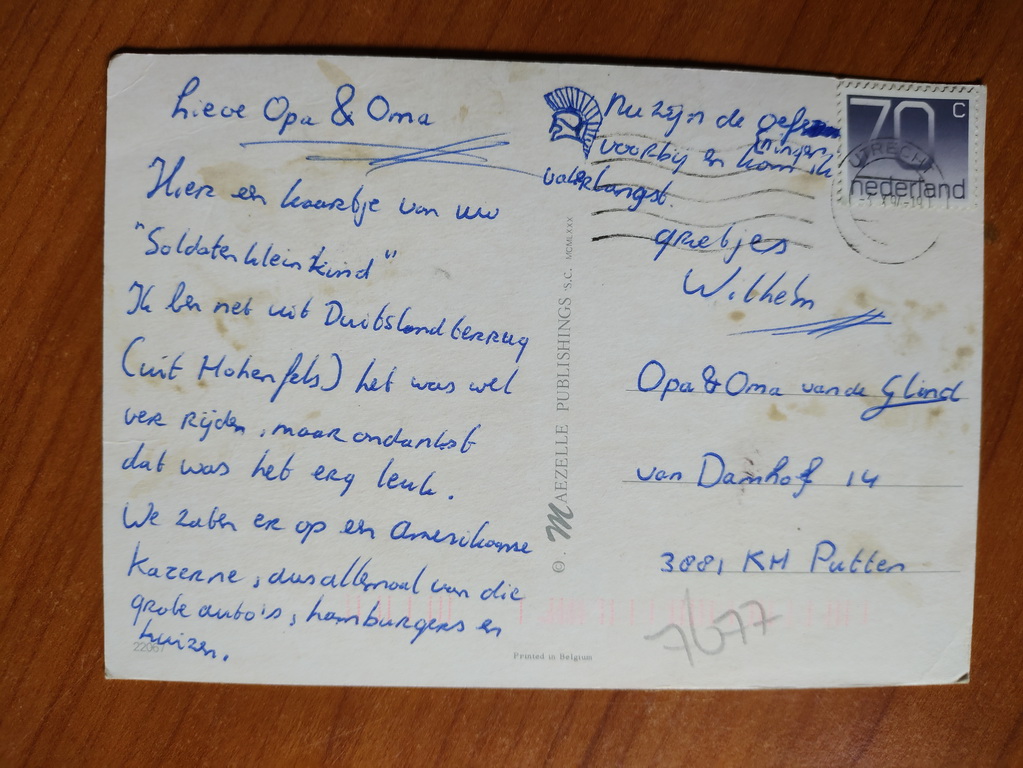 Lieve Opa & Oma
Hier een kaartje van uw
"Soldatenkleinkind"
Ik ben net uit Duitsland terrug
(uit Hohenfels) het was wel
ver rijden, maar ondankst
dat was het erg leuk.
We zaten er op een Amerikaanse
Kazerne, dus allemaal van die
grote auto's, hamburgers en
huizen.
22067
Nu zijn de oefen
ningen
voorbij en kom ik
valerlangst.
groetjes
Wilhelm
70 c
nederland
UTRECHT
Opa & Oma van de Glind
van Damhof 14
3881 KH Putten
7677
©. MAEZELLE PUBLISHINGS s.c. MCMLXXX
Printed in Belgium